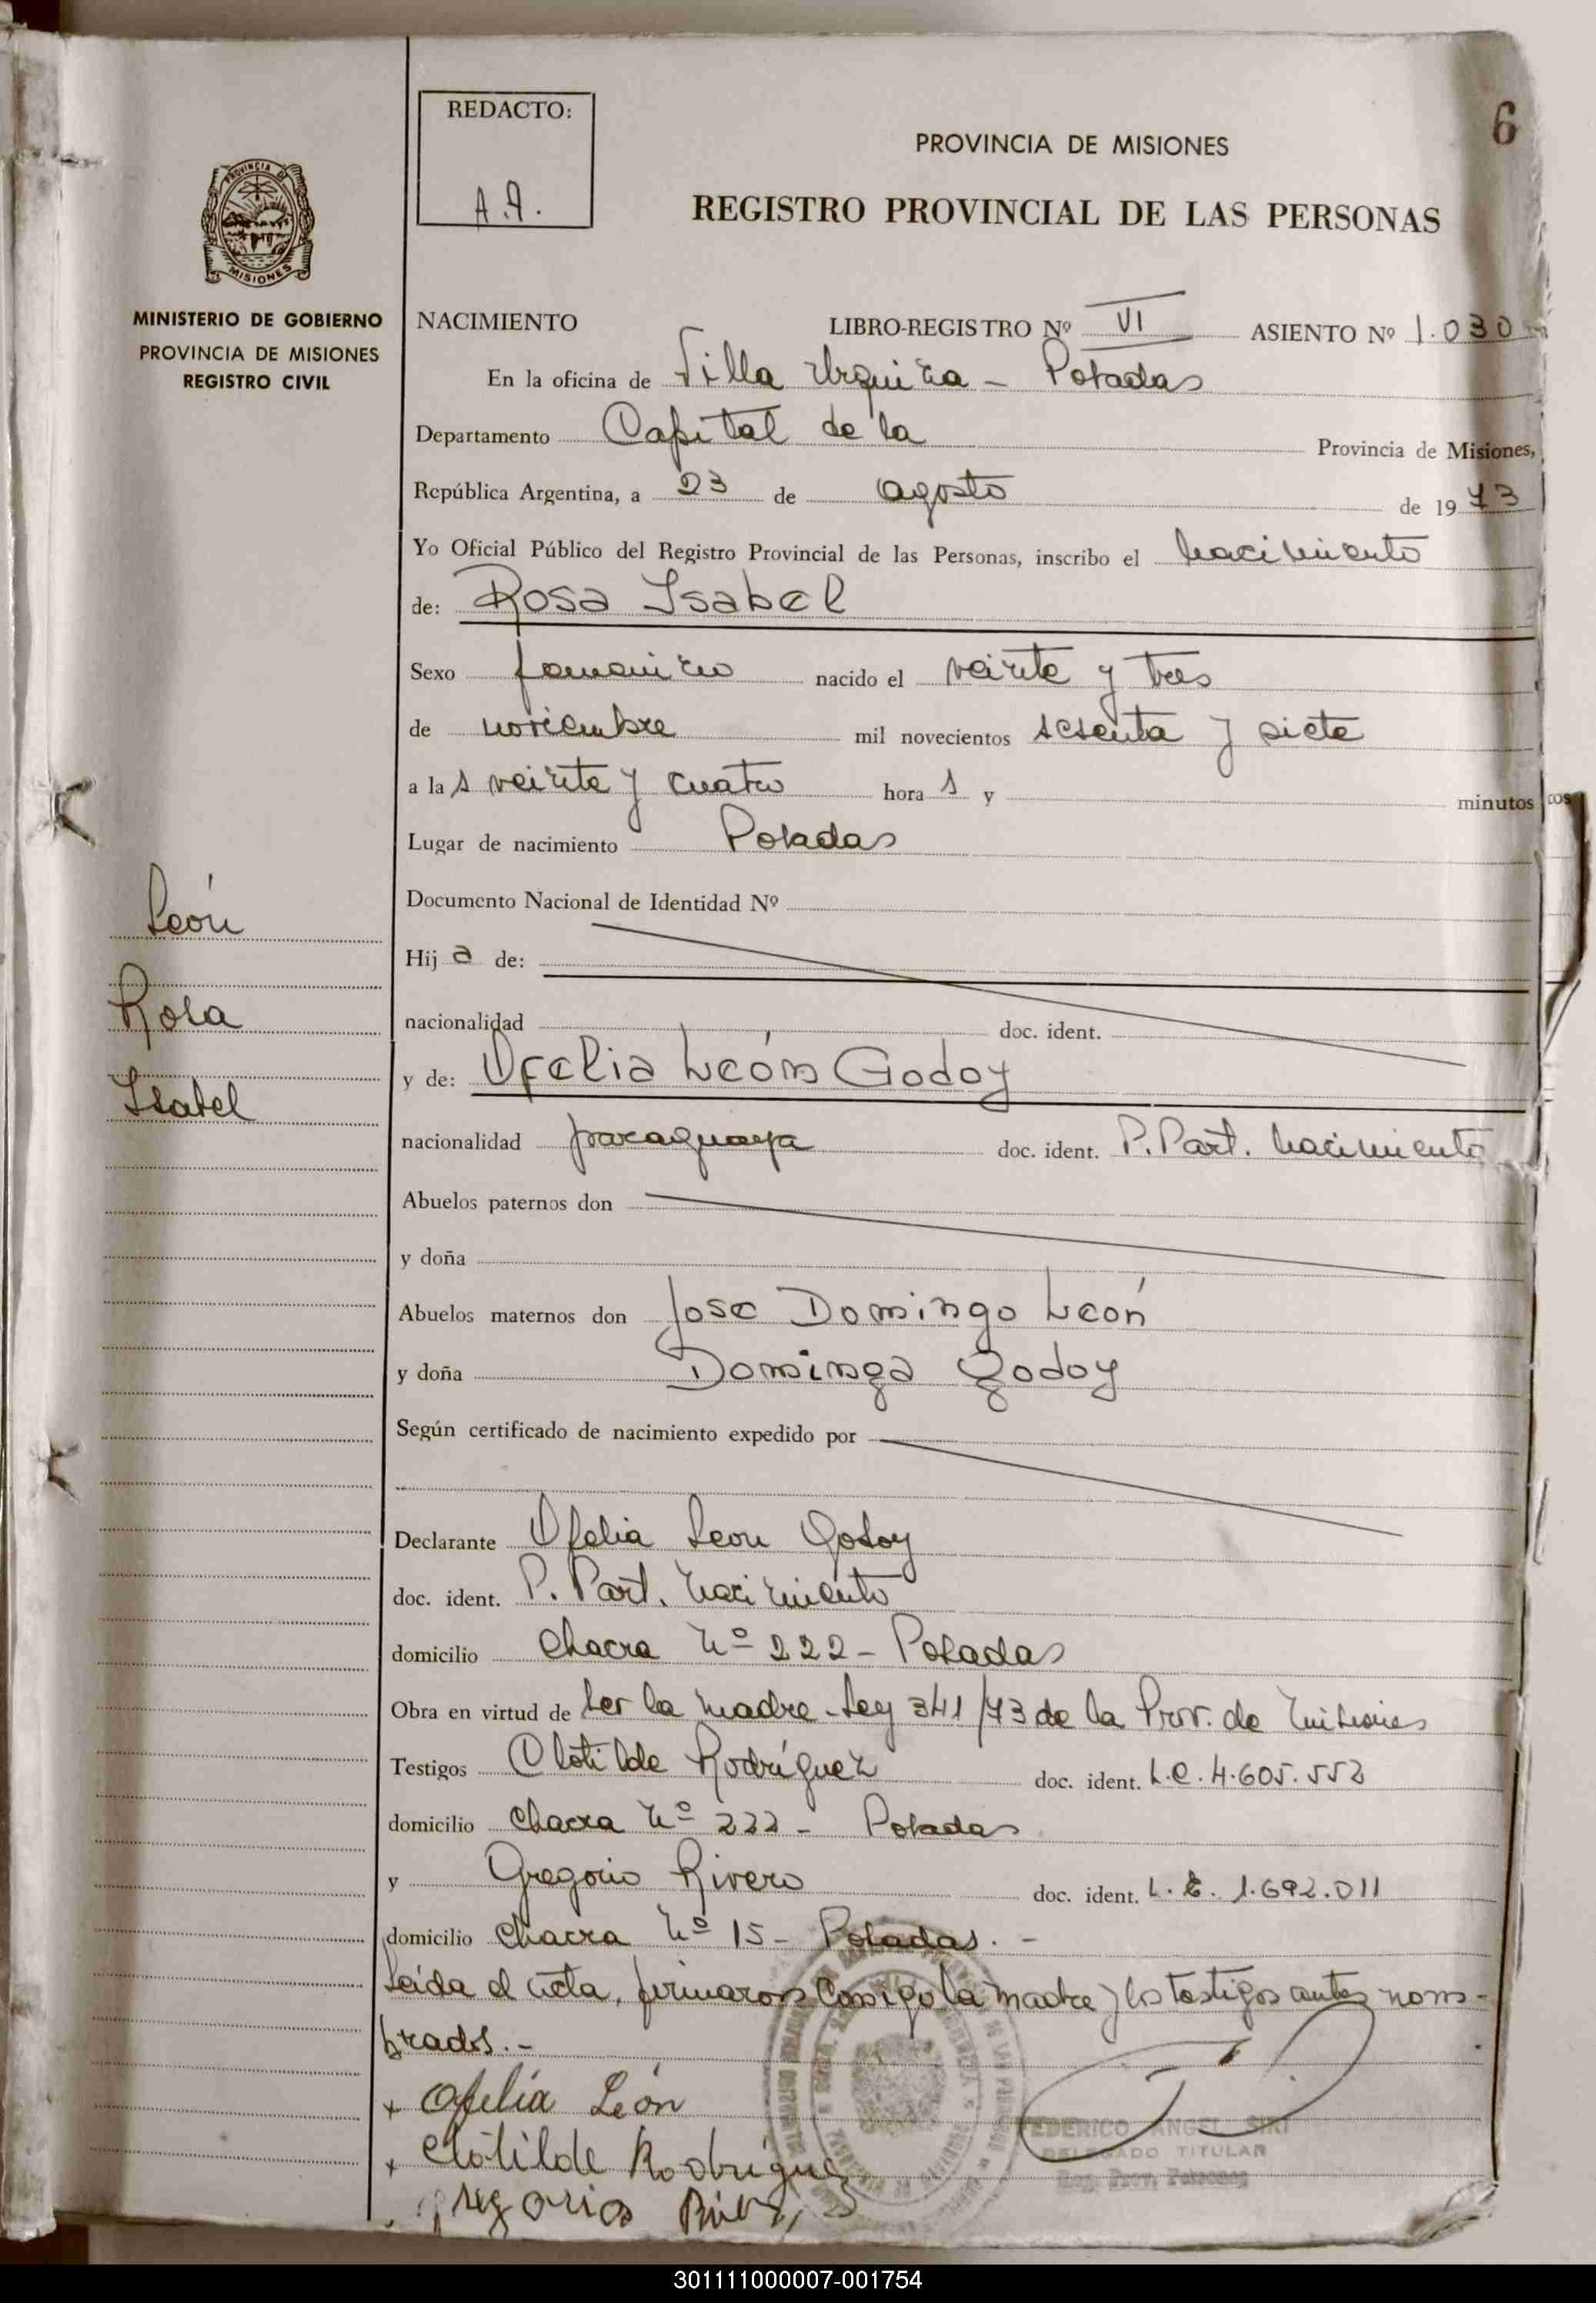 REDACTO:
A.A.
6
PROVINCIA DE MISIONES
REGISTRO PROVINCIAL DE LAS PERSONAS
PROVINCIA DE
MISIONES
MINISTERIO DE GOBIERNO
PROVINCIA DE MISIONES
REGISTRO CIVIL
León
Rosa
Isabel
NACIMIENTO LIBRO-REGISTRO Nº VI ASIENTO Nº 1.030
En la oficina de Villa Urquiza - Posadas
Departamento Capital de la Provincia de Misiones,
República Argentina, a 23 de agosto de 1973
Yo Oficial Público del Registro Provincial de las Personas, inscribo el nacimiento
de: Rosa Isabel
Sexo femenino nacido el veinte y tres
de noviembre mil novecientos sesenta y siete
a la s veinte y cuatro hora s y minutos
Lugar de nacimiento Posadas
Documento Nacional de Identidad Nº
Hij a de:
nacionalidad doc. ident.
y de: Ofelia León Godoy
nacionalidad paraguaya doc. ident. P. Part. nacimiento
Abuelos paternos don
y doña
Abuelos maternos don Jose Domingo León
y doña Dominga Godoy
Según certificado de nacimiento expedido por
Declarante Ofelia Leon Godoy
doc. ident. P. Part. nacimiento
domicilio Chacra Nº 222 - Posadas
Obra en virtud de ser la madre - Ley 341/73 de la Prov. de Misiones
Testigos Clotilde Rodríguez doc. ident. L.C. 4.605.552
domicilio Chacra Nº 222 - Posadas
y Gregorio Rivero doc. ident. L.E. 1.692.011
domicilio Chacra Nº 15 - Posadas. -
Leída el acta, firmaron consigo la madre y los testigos antes nom-
brados. -
+ Ofelia León
+ Clotilde Rodrigue
Gregorio
FEDERICO ANGEL SIRI
DELEGADO TITULAR
301111000007-001754